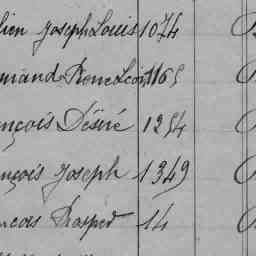 lien Joseph Louis 1074
mand Rene Léon 1165
nçois Désiré 1254
nçois Joseph 1349
ncois Prosper 14